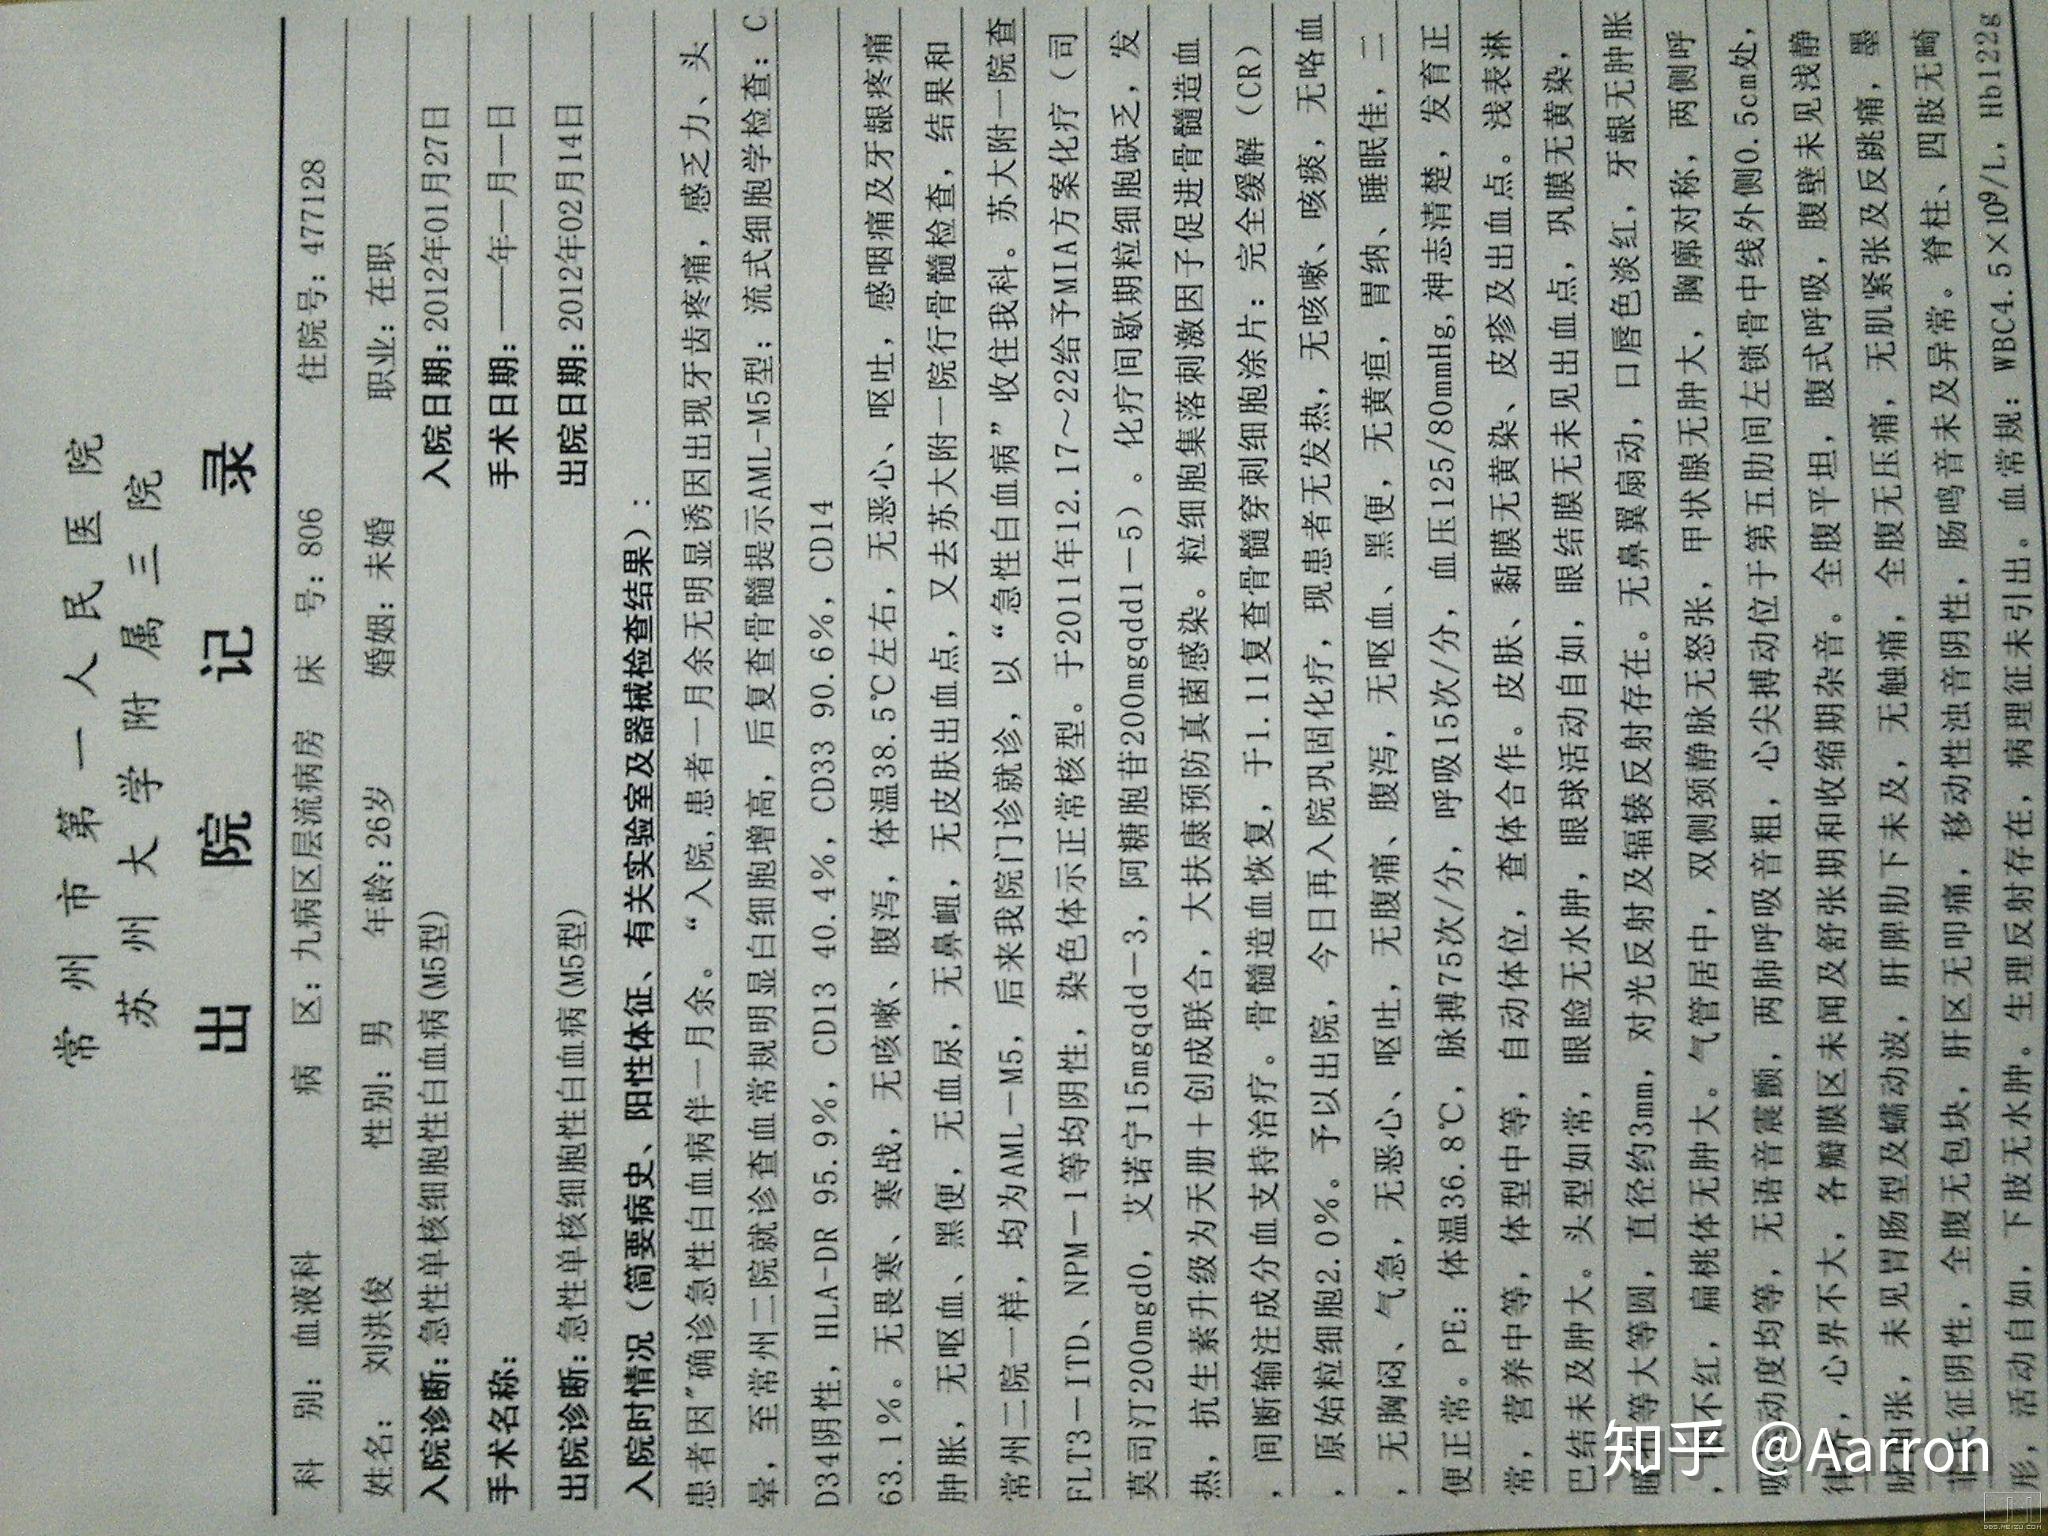 常州市第一人民医院
苏州大学附属三院
出院记录
科 别：血液科 病 区：九病区层流病房 床 号：806 住院号：477128
姓名： 刘洪俊 性别：男 年龄：26岁 婚姻：未婚 职业：在职
入院诊断：急性单核细胞性白血病(M5型) 入院日期：2012年01月27日
手术名称： 手术日期：——年—月—日
出院诊断：急性单核细胞性白血病(M5型) 出院日期：2012年02月14日
入院时情况（简要病史、阳性体征、有关实验室及器械检查结果）：
患者因"确诊急性白血病伴一月余。“入院,患者一月余无明显诱因出现牙齿疼痛，感乏力、头
晕，至常州二院就诊查血常规明显白细胞增高，后复查骨髓提示AML-M5型；流式细胞学检查：C
D34阴性，HLA-DR 95.9%，CD13 40.4%，CD33 90.6%，CD14
63.1%。无畏寒、寒战，无咳嗽、腹泻，体温38.5℃左右，无恶心、呕吐，感咽痛及牙龈疼痛
肿胀，无呕血、黑便，无血尿，无鼻衄，无皮肤出血点，又去苏大附一院行骨髓检查，结果和
常州二院一样，均为AML－M5，后来我院门诊就诊，以“急性白血病”收住我科。苏大附一院查
FLT3－ITD、NPM－1等均阴性，染色体示正常核型。于2011年12.17～22给予MIA方案化疗（司
莫司汀200mgd0，艾诺宁15mgqdd－3，阿糖胞苷200mgqdd1－5）。化疗间歇期粒细胞缺乏，发
热，抗生素升级为天册＋创成联合，大扶康预防真菌感染。粒细胞集落刺激因子促进骨髓造血
，间断输注成分血支持治疗。骨髓造血恢复，于1.11复查骨髓穿刺细胞涂片：完全缓解（CR）
，原始粒细胞2.0%。予以出院，今日再入院巩固化疗，现患者无发热，无咳嗽、咳痰，无咯血
，无胸闷、气急，无恶心、呕吐，无腹痛、腹泻，无呕血、黑便，无黄疸，胃纳、睡眠佳，二
便正常。PE：体温36.8℃，脉搏75次/分，呼吸15次/分，血压125/80mmHg,神志清楚，发育正
常，营养中等，体型中等，自动体位，查体合作。皮肤、黏膜无黄染、皮疹及出血点。浅表淋
巴结未及肿大。头型如常，眼睑无水肿，眼球活动自如，眼结膜无未见出血点，巩膜无黄染，
等大等圆，直径约3mm，对光反射及辐辏反射存在。无鼻翼扇动，口唇色淡红，牙龈无肿胀
，不红，扁桃体无肿大。气管居中，双侧颈静脉无怒张，甲状腺无肿大，胸廓对称，两侧呼
动度均等，无语音震颤，两肺呼吸音粗，心尖搏动位于第五肋间左锁骨中线外侧0.5cm处，
，心界不大，各瓣膜区未闻及舒张期和收缩期杂音。全腹平坦，腹式呼吸，腹壁未见浅静
张，未见胃肠型及蠕动波，肝脾肋下未及，无触痛，全腹无压痛，无肌紧张及反跳痛，墨
氏征阴性，全腹无包块，肝区无叩痛，移动性浊音阴性，肠鸣音未及异常。脊柱、四肢无畸
形，活动自如，下肢无水肿。生理反射存在，病理征未引出。血常规：WBC4.5×10⁹/L，Hb122g
知乎 @Aarron
BBS.MEIZU.COM